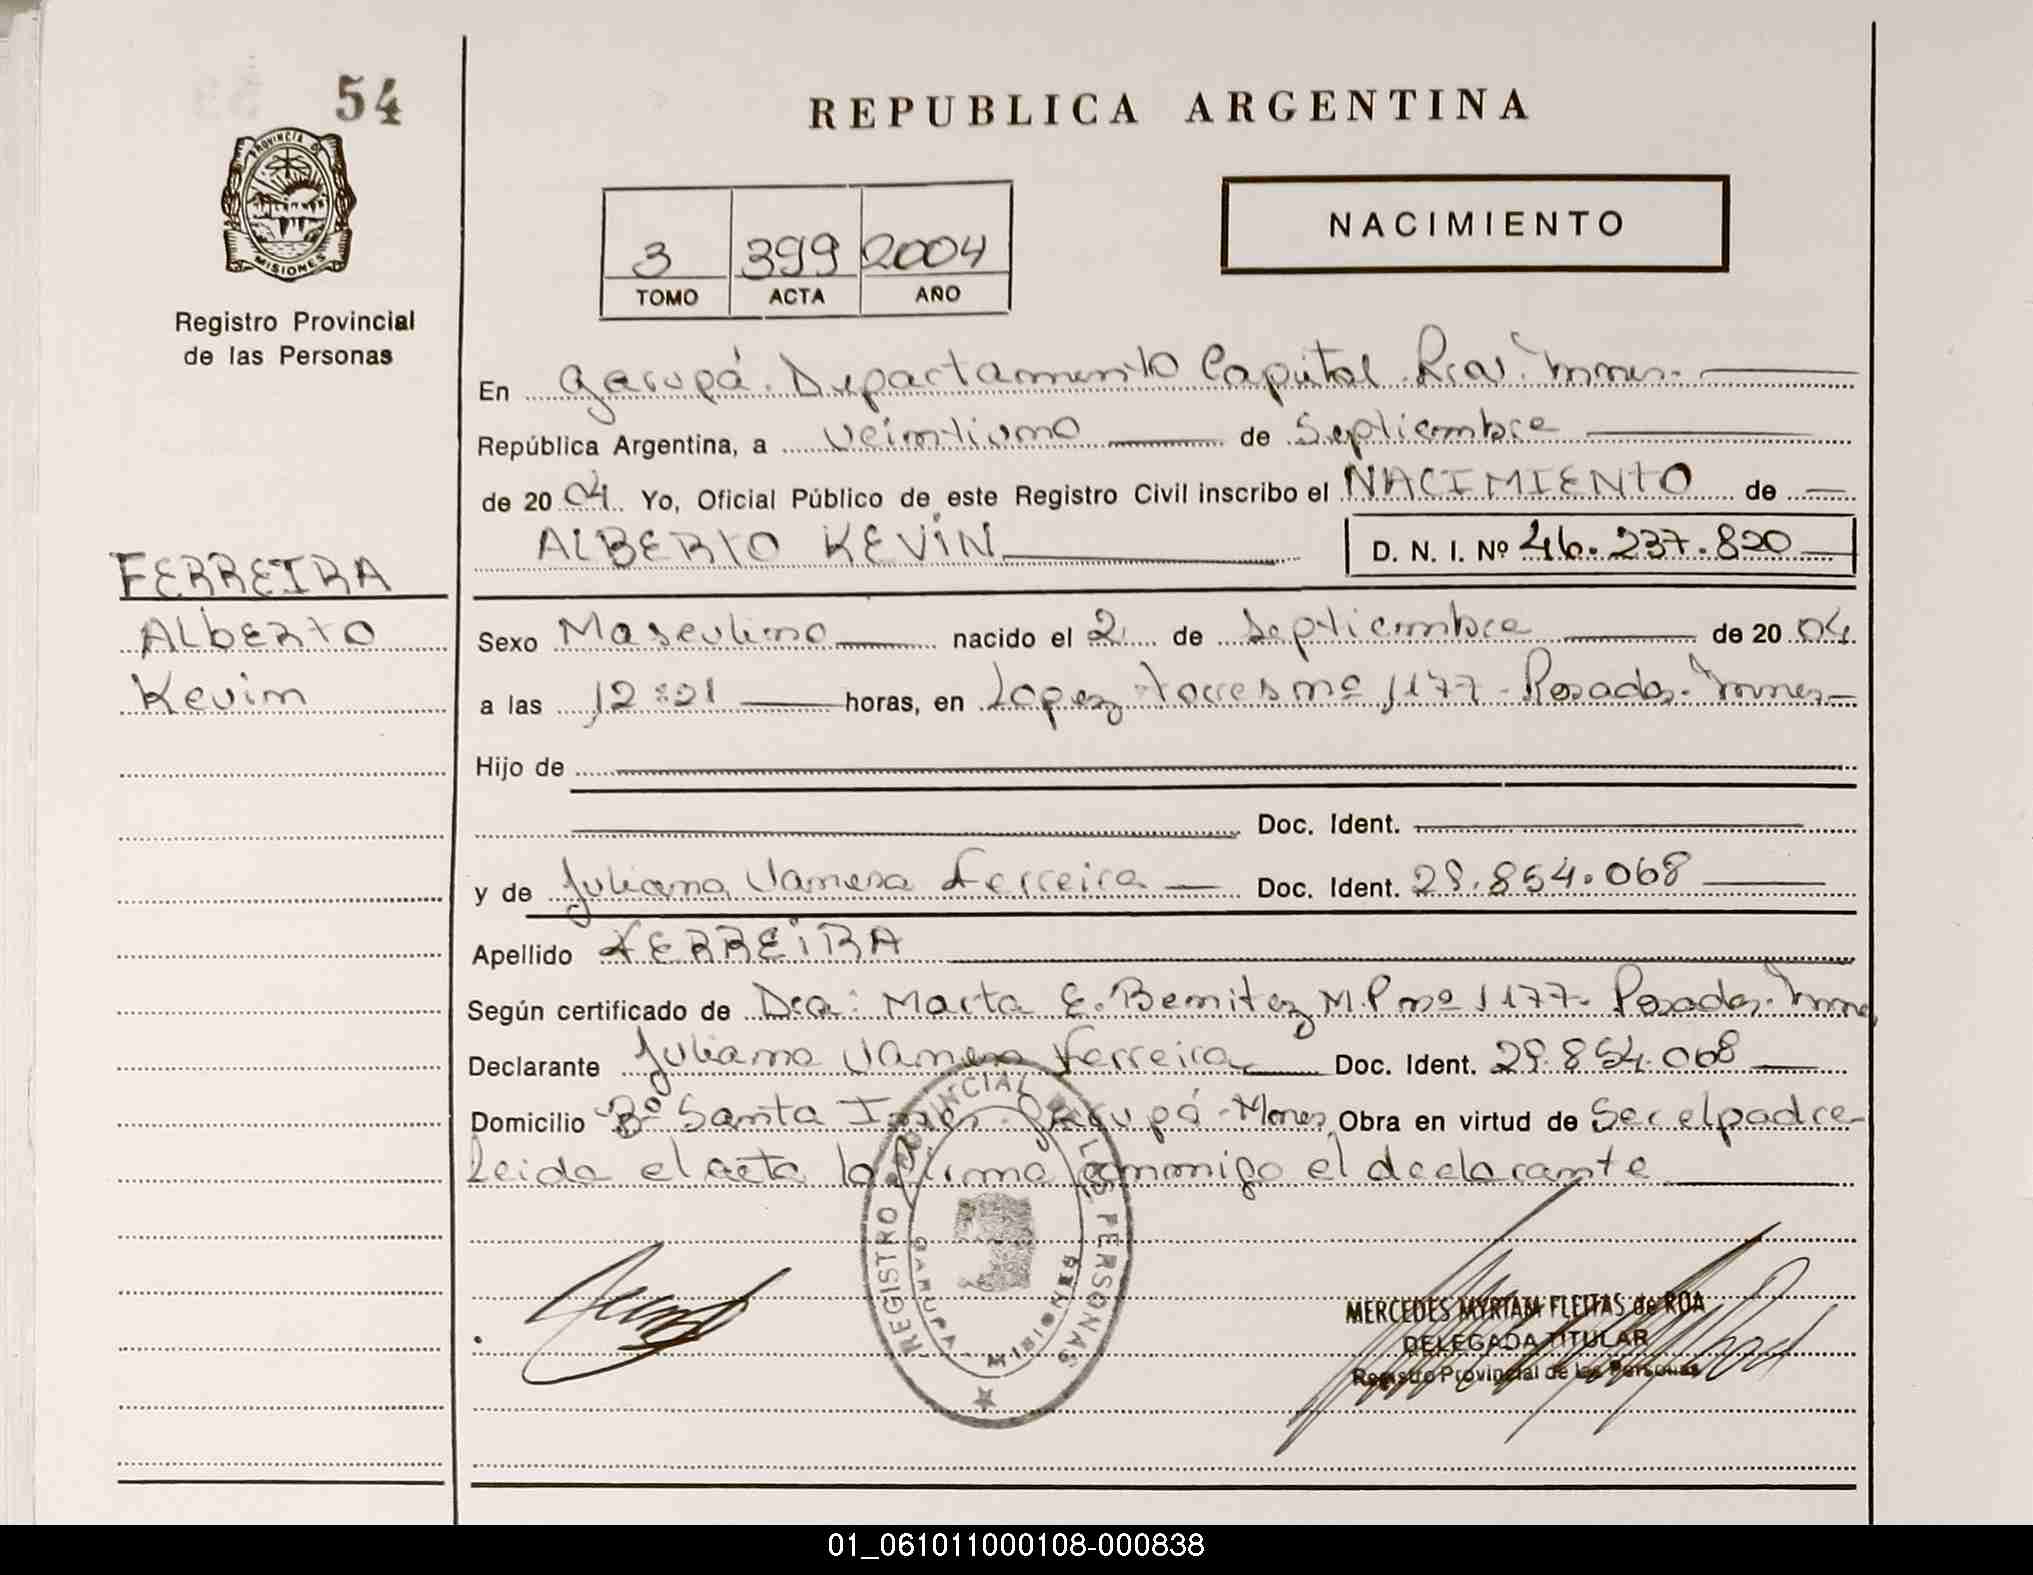 54
PROVINCIA DE
MISIONES
Registro Provincial
de las Personas
REPUBLICA ARGENTINA
3 399 2004
TOMO ACTA AÑO
NACIMIENTO
En Garupá. Departamento Capital. Pcia. Mnes.
República Argentina, a veintiuno de Septiembre
de 20 04. Yo, Oficial Público de este Registro Civil inscribo el NACIMIENTO de
ALBERTO KEVIN D. N. I. Nº 46.237.820
FERREIRA
Alberto
Kevin
Sexo Masculino nacido el 2 de Septiembre de 20 04.
a las 12:21 horas, en Lopez Torres nº 1177 - Posadas. Mnes
Hijo de
Doc. Ident.
y de Juliana Vanesa Ferreira Doc. Ident. 29.854.068
Apellido FERREIRA
Según certificado de Dra: Marta E. Benitez M.P nº 1177 - Posadas. Mnes
Declarante Juliana Vanesa Ferreira Doc. Ident. 29.854.068
Domicilio Bº Santa Ines. Garupá - Mnes. Obra en virtud de Ser el padre
Leida el acta la firma conmigo el declarante
REGISTRO PROVINCIAL DE LAS PERSONAS
GARUPA - MISIONES
MERCEDES MYRIAM FLEITAS de ROA
DELEGADA TITULAR
Registro Provincial de las Personas
01_061011000108-000838